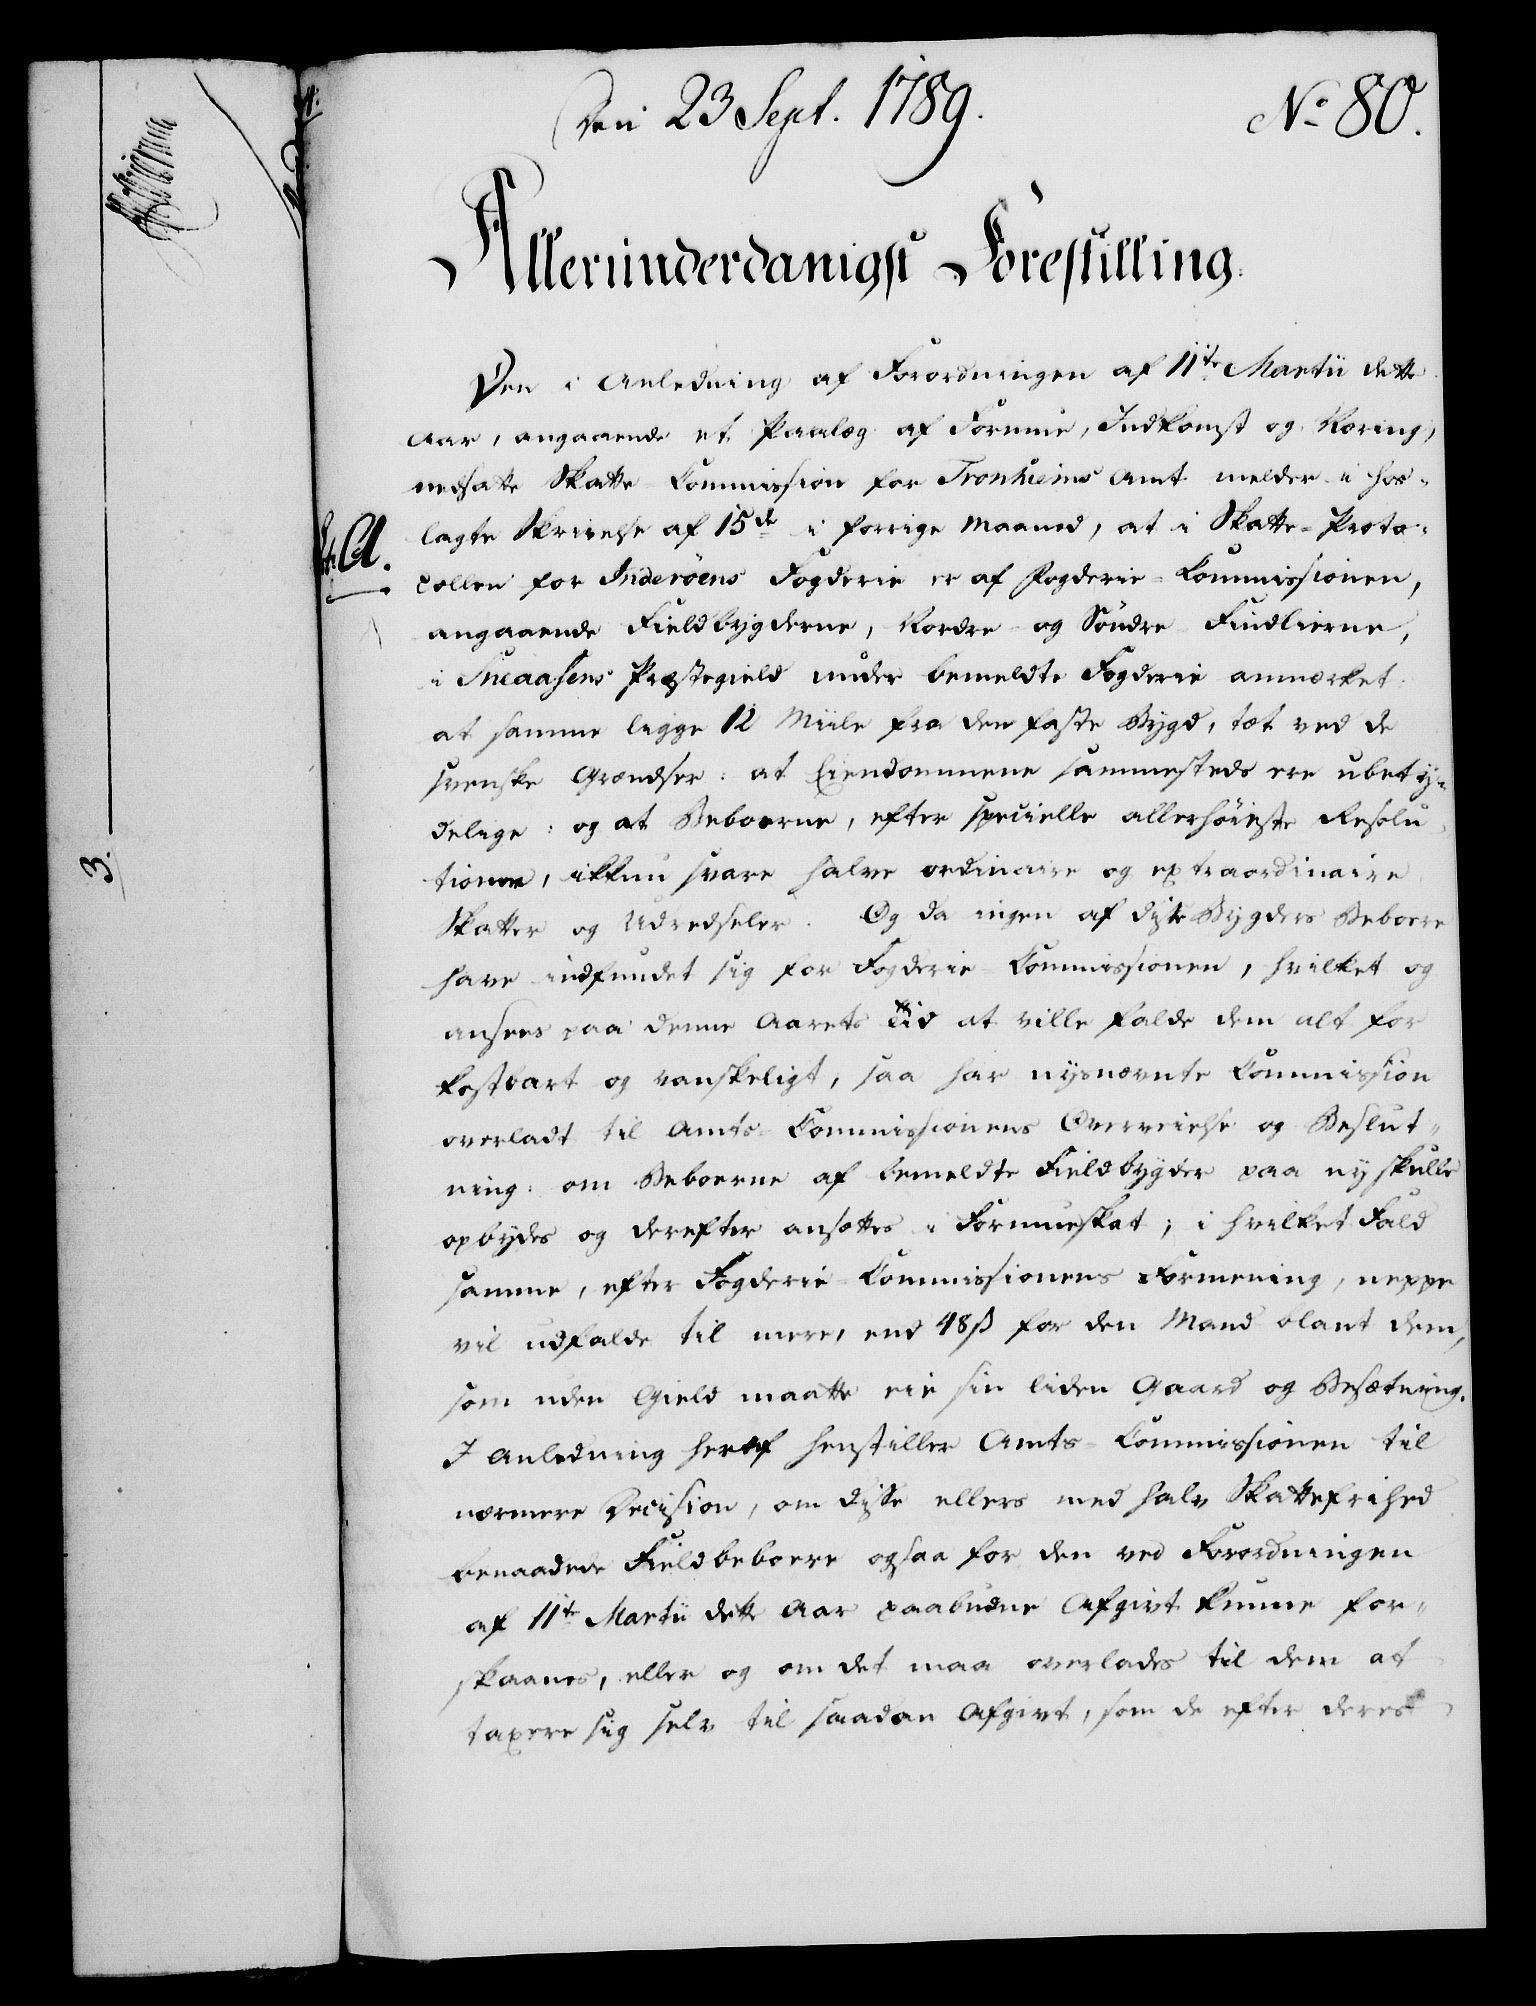 Den 23 Sept. 1789.
No 80.
Allerunderdanigst Forestilling.
Den i Anledning af Forordningen af 11te Martii dette
Aar, angaaende et Paalæg af Formue, Indkomst og Næring,
nedsatte Skatte-Commission for Tronhiems Amt melder i hos-
lagte Skrivelse af 15de i forrige Maaned, at i Skatte-Proto-
Litr. A.
collen for Inderöens Fogderie er af Fogderie-Commissionen,
angaaende Fieldbygderne, Nordre og Söndre Findlierne,
i Sneaasens Præstegield under bemeldte Fogderie anmærket:
at samme ligge 12 Miile fra den faste Bygd, tæt ved de
svenske Grændser: at Eiendommene sammesteds ere ubety-
delige: og at Beboerne, efter specielle allerhöieste Resolu-
tioner, ikkun svare halve ordinaire og extraordinaire
Skatter og Udredseler. Og da ingen af disse Bygders Beboere
have indfundet sig for Fogderie-Commissionen, hvilket og
ansees paa denne Aarets Tid at ville falde dem alt for
kostbart og vanskeligt, saa har nysnævnte Commission
overladt til Amts-Commissionens Overveielse og Beslut-
ning: om Beboerne af bemeldte Fieldbygder paa ny skulle
opbydes og derefter ansættes i Formueskat; i hvilket Fald
samme, efter Fogderie-Commissionens Formening, neppe
vil udfalde til mere, end 48 ß for den Mand blant dem,
som uden Gield maatte eie sin liden Gaard og Besætning.
I Anledning heraf henstiller Amts-Commissionen til
nærmere Decision, om disse ellers med halv Skattefrihed
benaadede Fieldbeboere ogsaa for den ved Forordningen
af 11te Martii dette Aar paabudne Afgivt kunne for-
skaanes, eller og om det maa overlades til dem at
taxere sig selv til saadan Afgivt, som de efter deres
3.